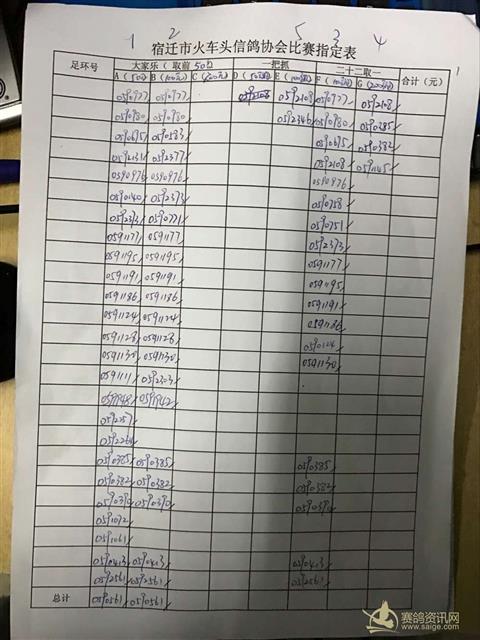 1 2 5 3 4
宿迁市火车头信鸽协会比赛指定表
足环号 大家乐（取前50） 一把抓 二十二取一 合计（元）
A（50元） B（100元） C（200元） D（50元） E（100元） F（100元） G（200元）
0590977 0590977 0592108 0590977 0592108
0590980 0590980 0592346 0590980 0590385
0590695 0590583 0590695 0590382
0592131 0592377 0592108 0591145
0590976 0590976 0590976
0590140 0592373 0590758
0592373 0590721 0590751
0591177 0591177 0592373
0591195 0591195 0591177
0591191 0591191 0591195
0591186 0591186 0591191
0591124 0591124 0591186
0591128 0591128 0590124
0591130 0591130 0591130
0591111 0592303
0591948 0591942
0592257
0592264
0590385 0590385 0590385
0590382 0590382 0590382
0590390 0590390 0590390
0591092
0591061
0590403 0590403 0590403
0592561 0592561 0592561
总计 0590561 0590561
赛鸽资讯网
www.saige.com